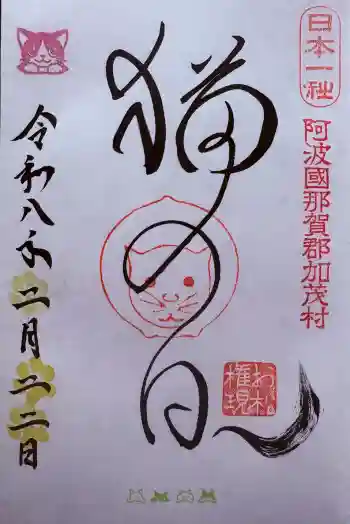 日本一社
阿波國那賀郡加茂村
猫の日
お松
権現
令和八年二月二二日